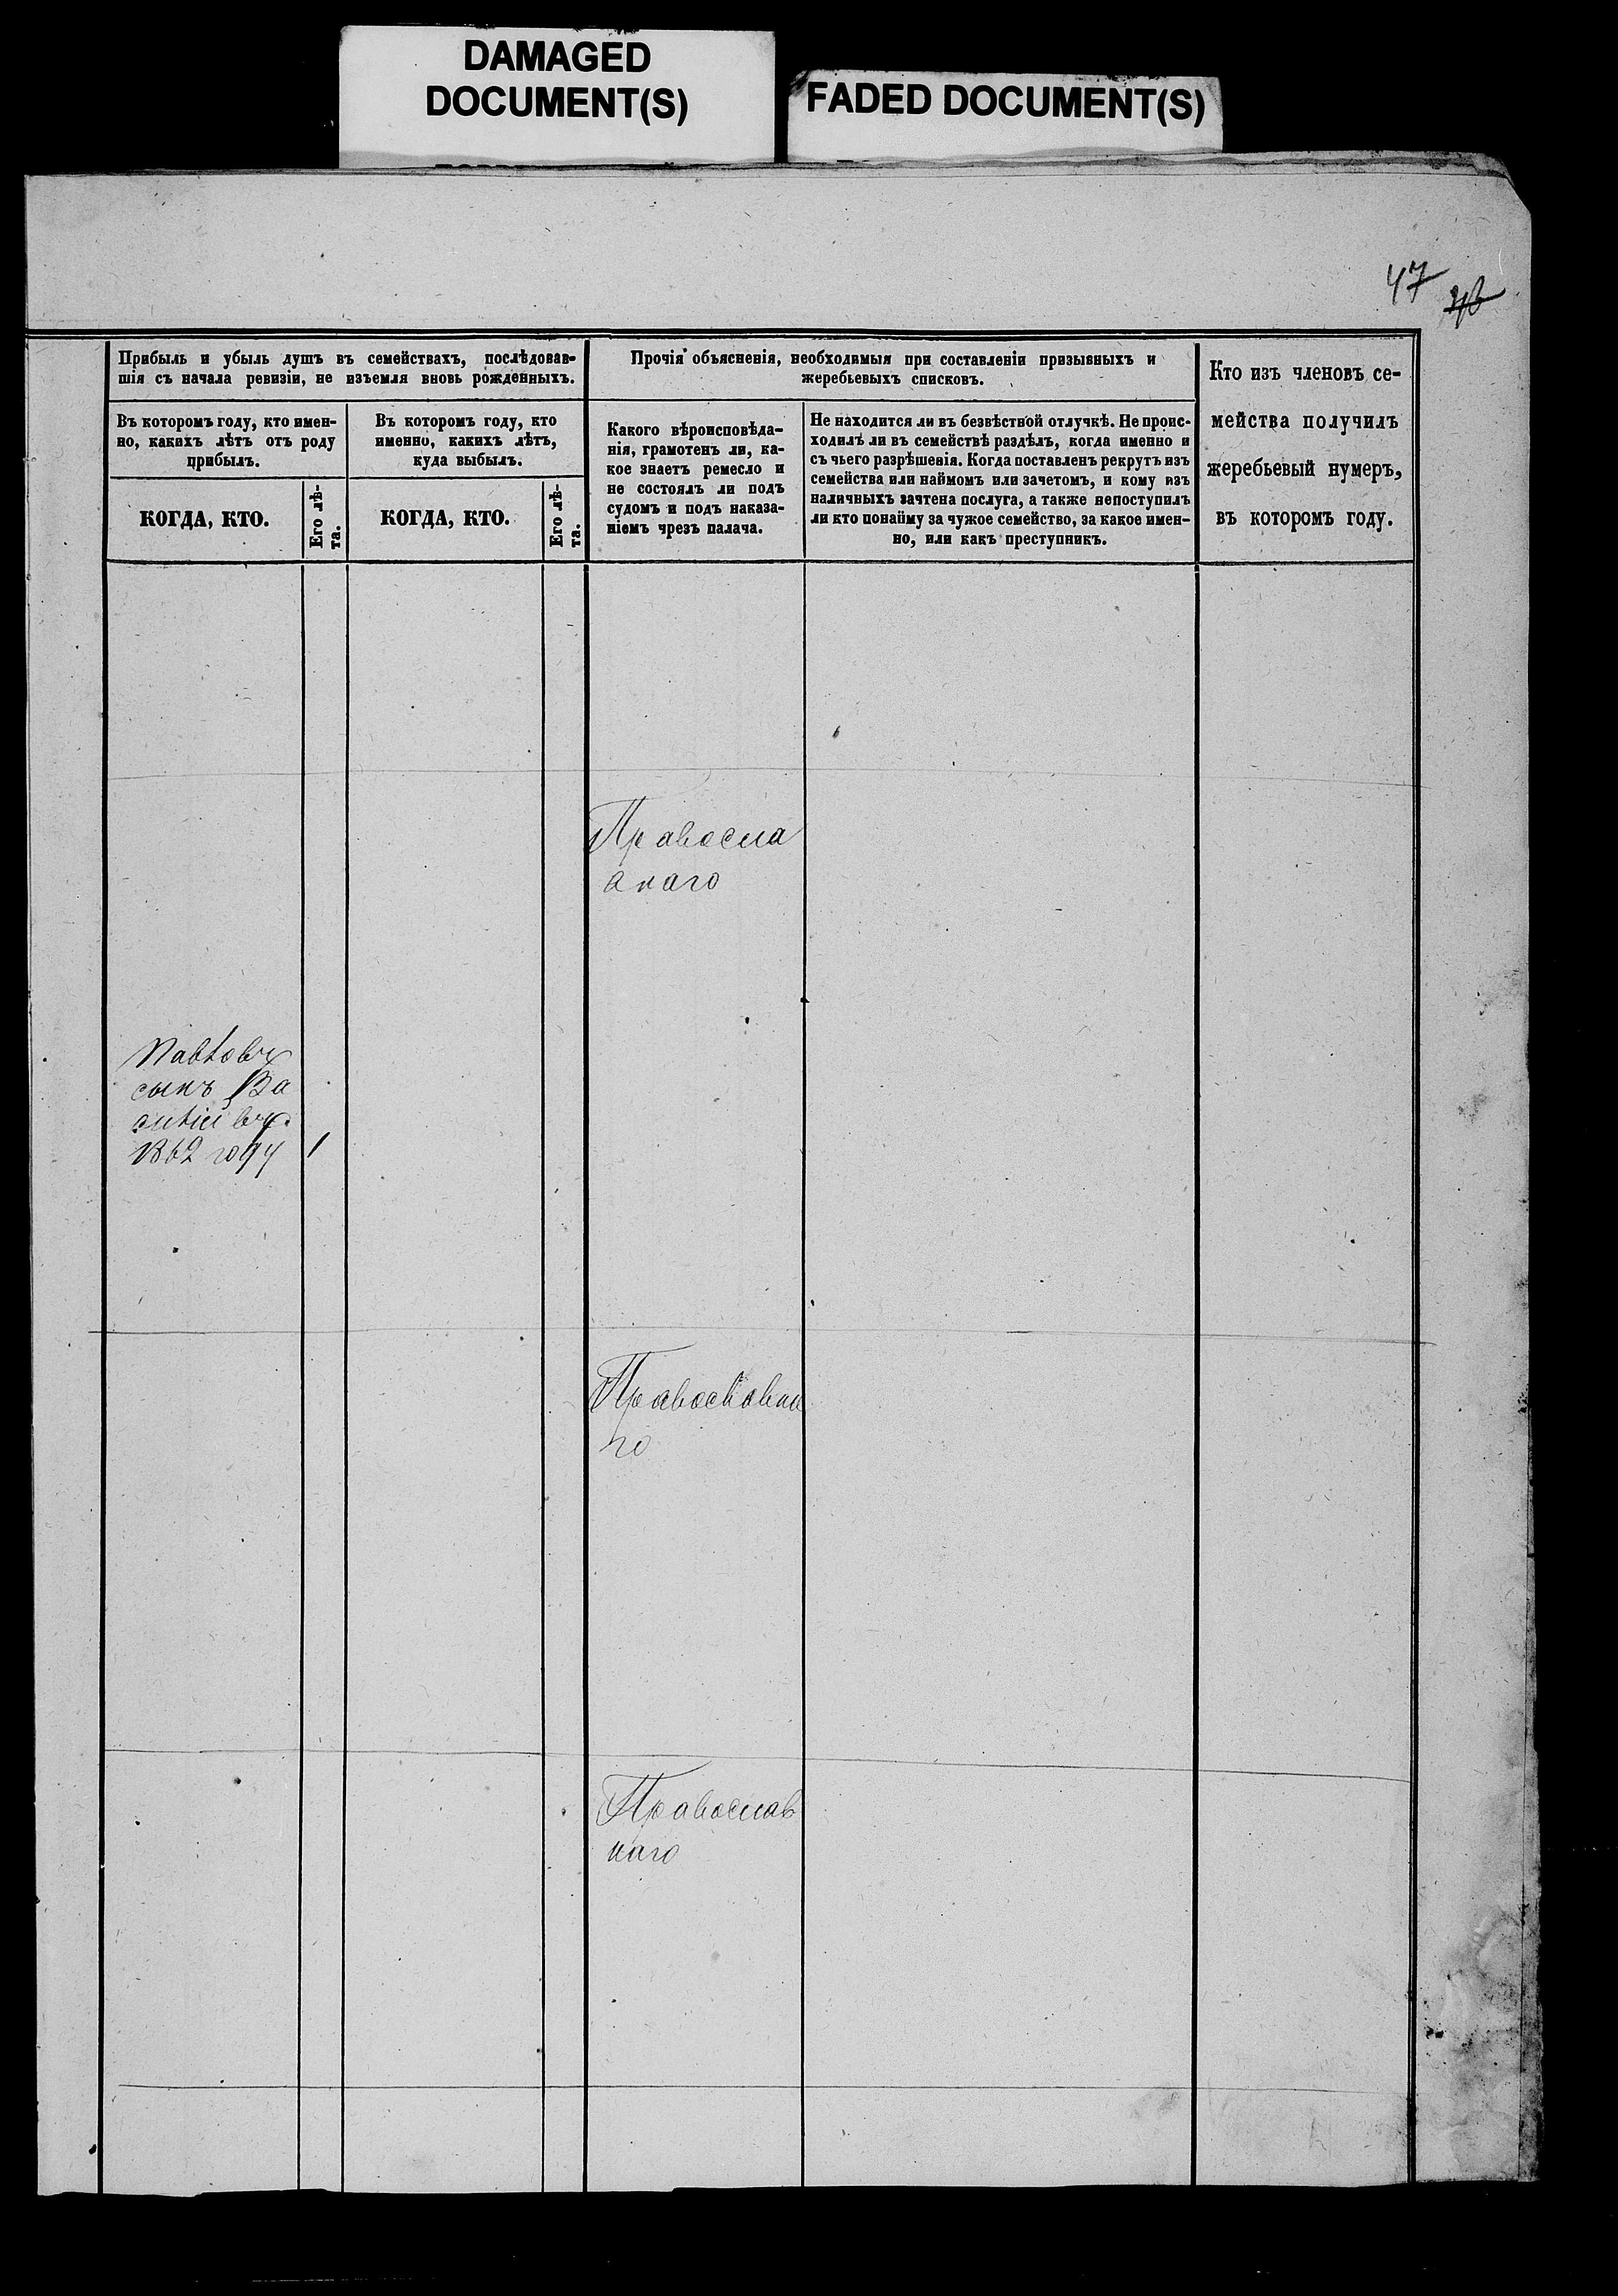 DAMAGED
DOCUMENT(S)
FADED DOCUMENT(S)
47
Прибыль и убыль душъ въ семействахъ, послѣдовав-
шія съ начала ревизіи, не изъемля вновь рожденныхъ.
Въ которомъ году, кто имен-
но, какихъ лѣтъ отъ роду
прибылъ.
КОГДА, КТО.
Его лѣ-
та.
Въ которомъ году, кто
именно, какихъ лѣтъ,
куда выбылъ.
КОГДА, КТО.
Его лѣ-
та.
Прочія объясненія, необходимыя при составленіи призывныхъ и
жеребьевыхъ списковъ.
Какого вѣроисповѣда-
нія, грамотенъ ли, ка-
кое знаетъ ремесло и
не состоялъ ли подъ
судомъ и подъ наказа-
ніемъ чрезъ палача.
Не находится ли въ безвѣстной отлучкѣ. Не проис-
ходилъ ли въ семействѣ раздѣлъ, когда именно и
съ чьего разрѣшенія. Когда поставленъ рекрутъ изъ
семейства или наймомъ или зачетомъ, и кому изъ
наличныхъ зачтена послуга, а также непоступилъ
ли кто понайму за чужое семейство, за какое имен-
но, или какъ преступникъ.
Кто изъ членовъ се-
мейства получилъ
жеребьевый нумеръ,
въ которомъ году.
Правосла
внаго
Павловъ
сынъ Ва
силіевъ
1862 году 1
Православна
го
Православ
наго